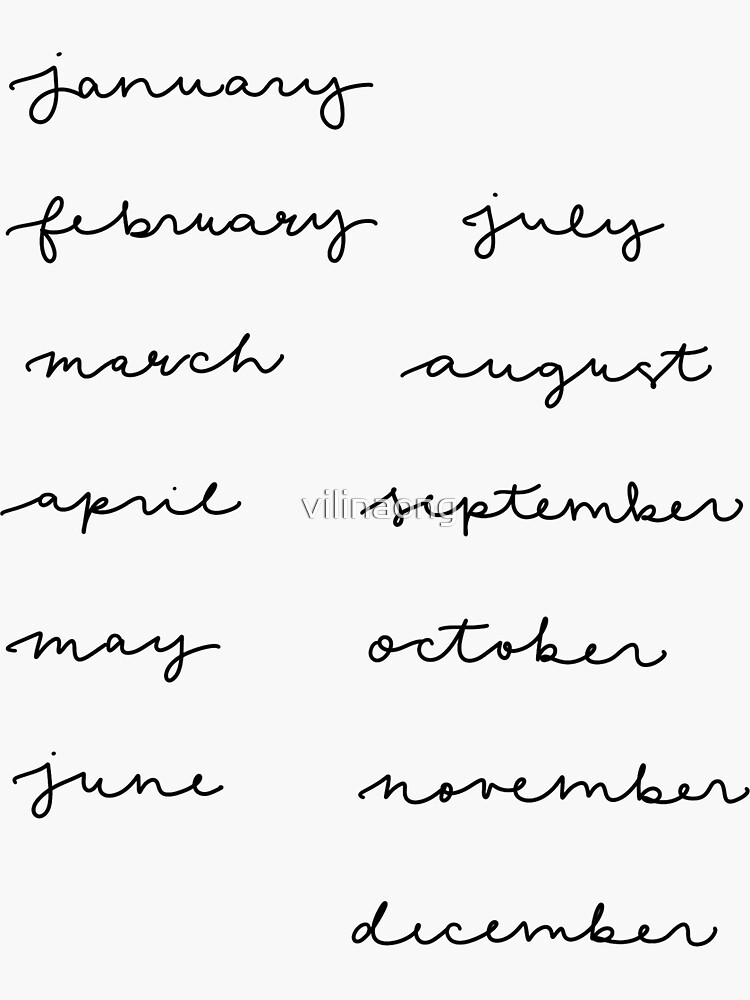 january
february
march
april
may
june
july
august
september
october
november
december
vilinaong